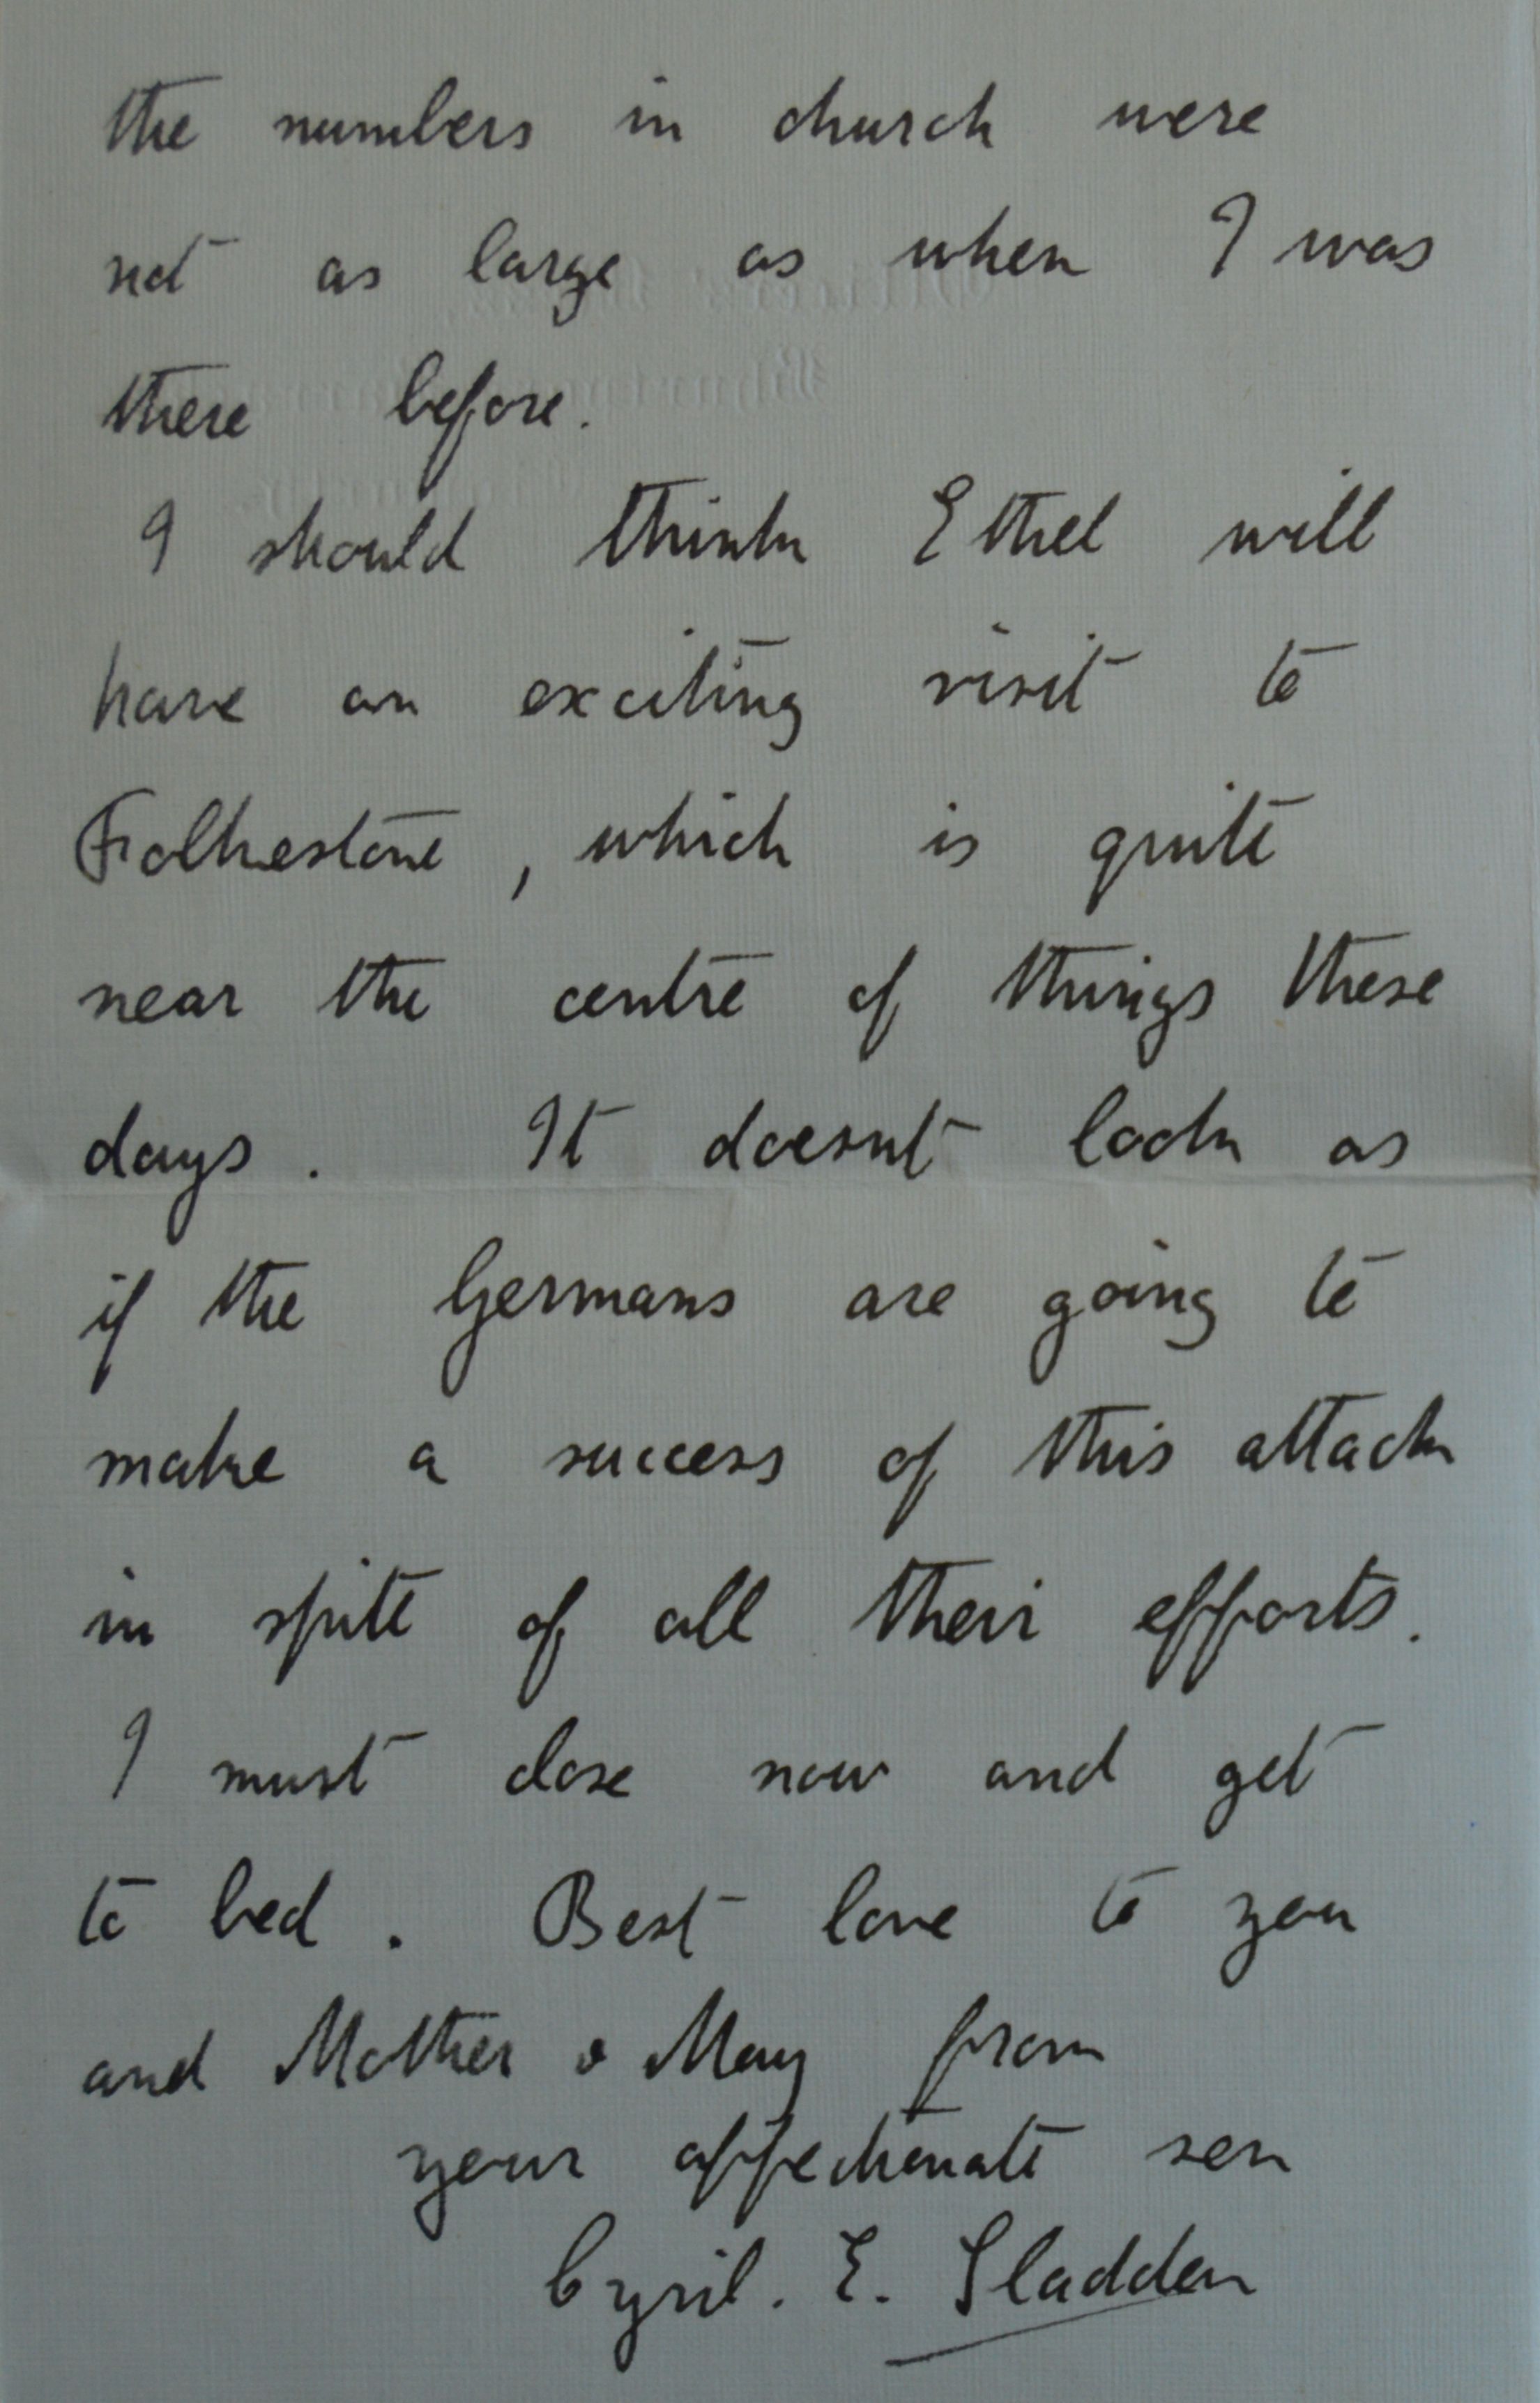 the numbers in church were
not as large as when I was
there before.
I should think Ethel will
have an exciting visit to
Folkestone, which is quite
near the centre of things these
days. It doesnt look as
if the Germans are going to
make a success of this attack
in spite of all their efforts.
I must close now and get
to bed. Best love to you
and Mother & May from
your affectionate son
Cyril. E. Sladden